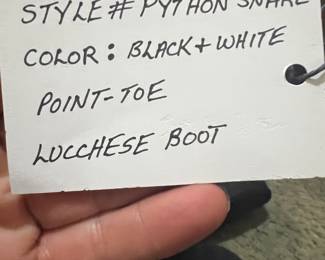 STYLE # PYTHON SNAKE
COLOR: BLACK + WHITE
POINT-TOE
LUCCHESE BOOT